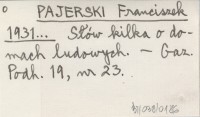 PAJERSKI Franciszek
1931... Słów kilka o do-
mach ludowych. — Gaz.
Podh. 19, nr 23.